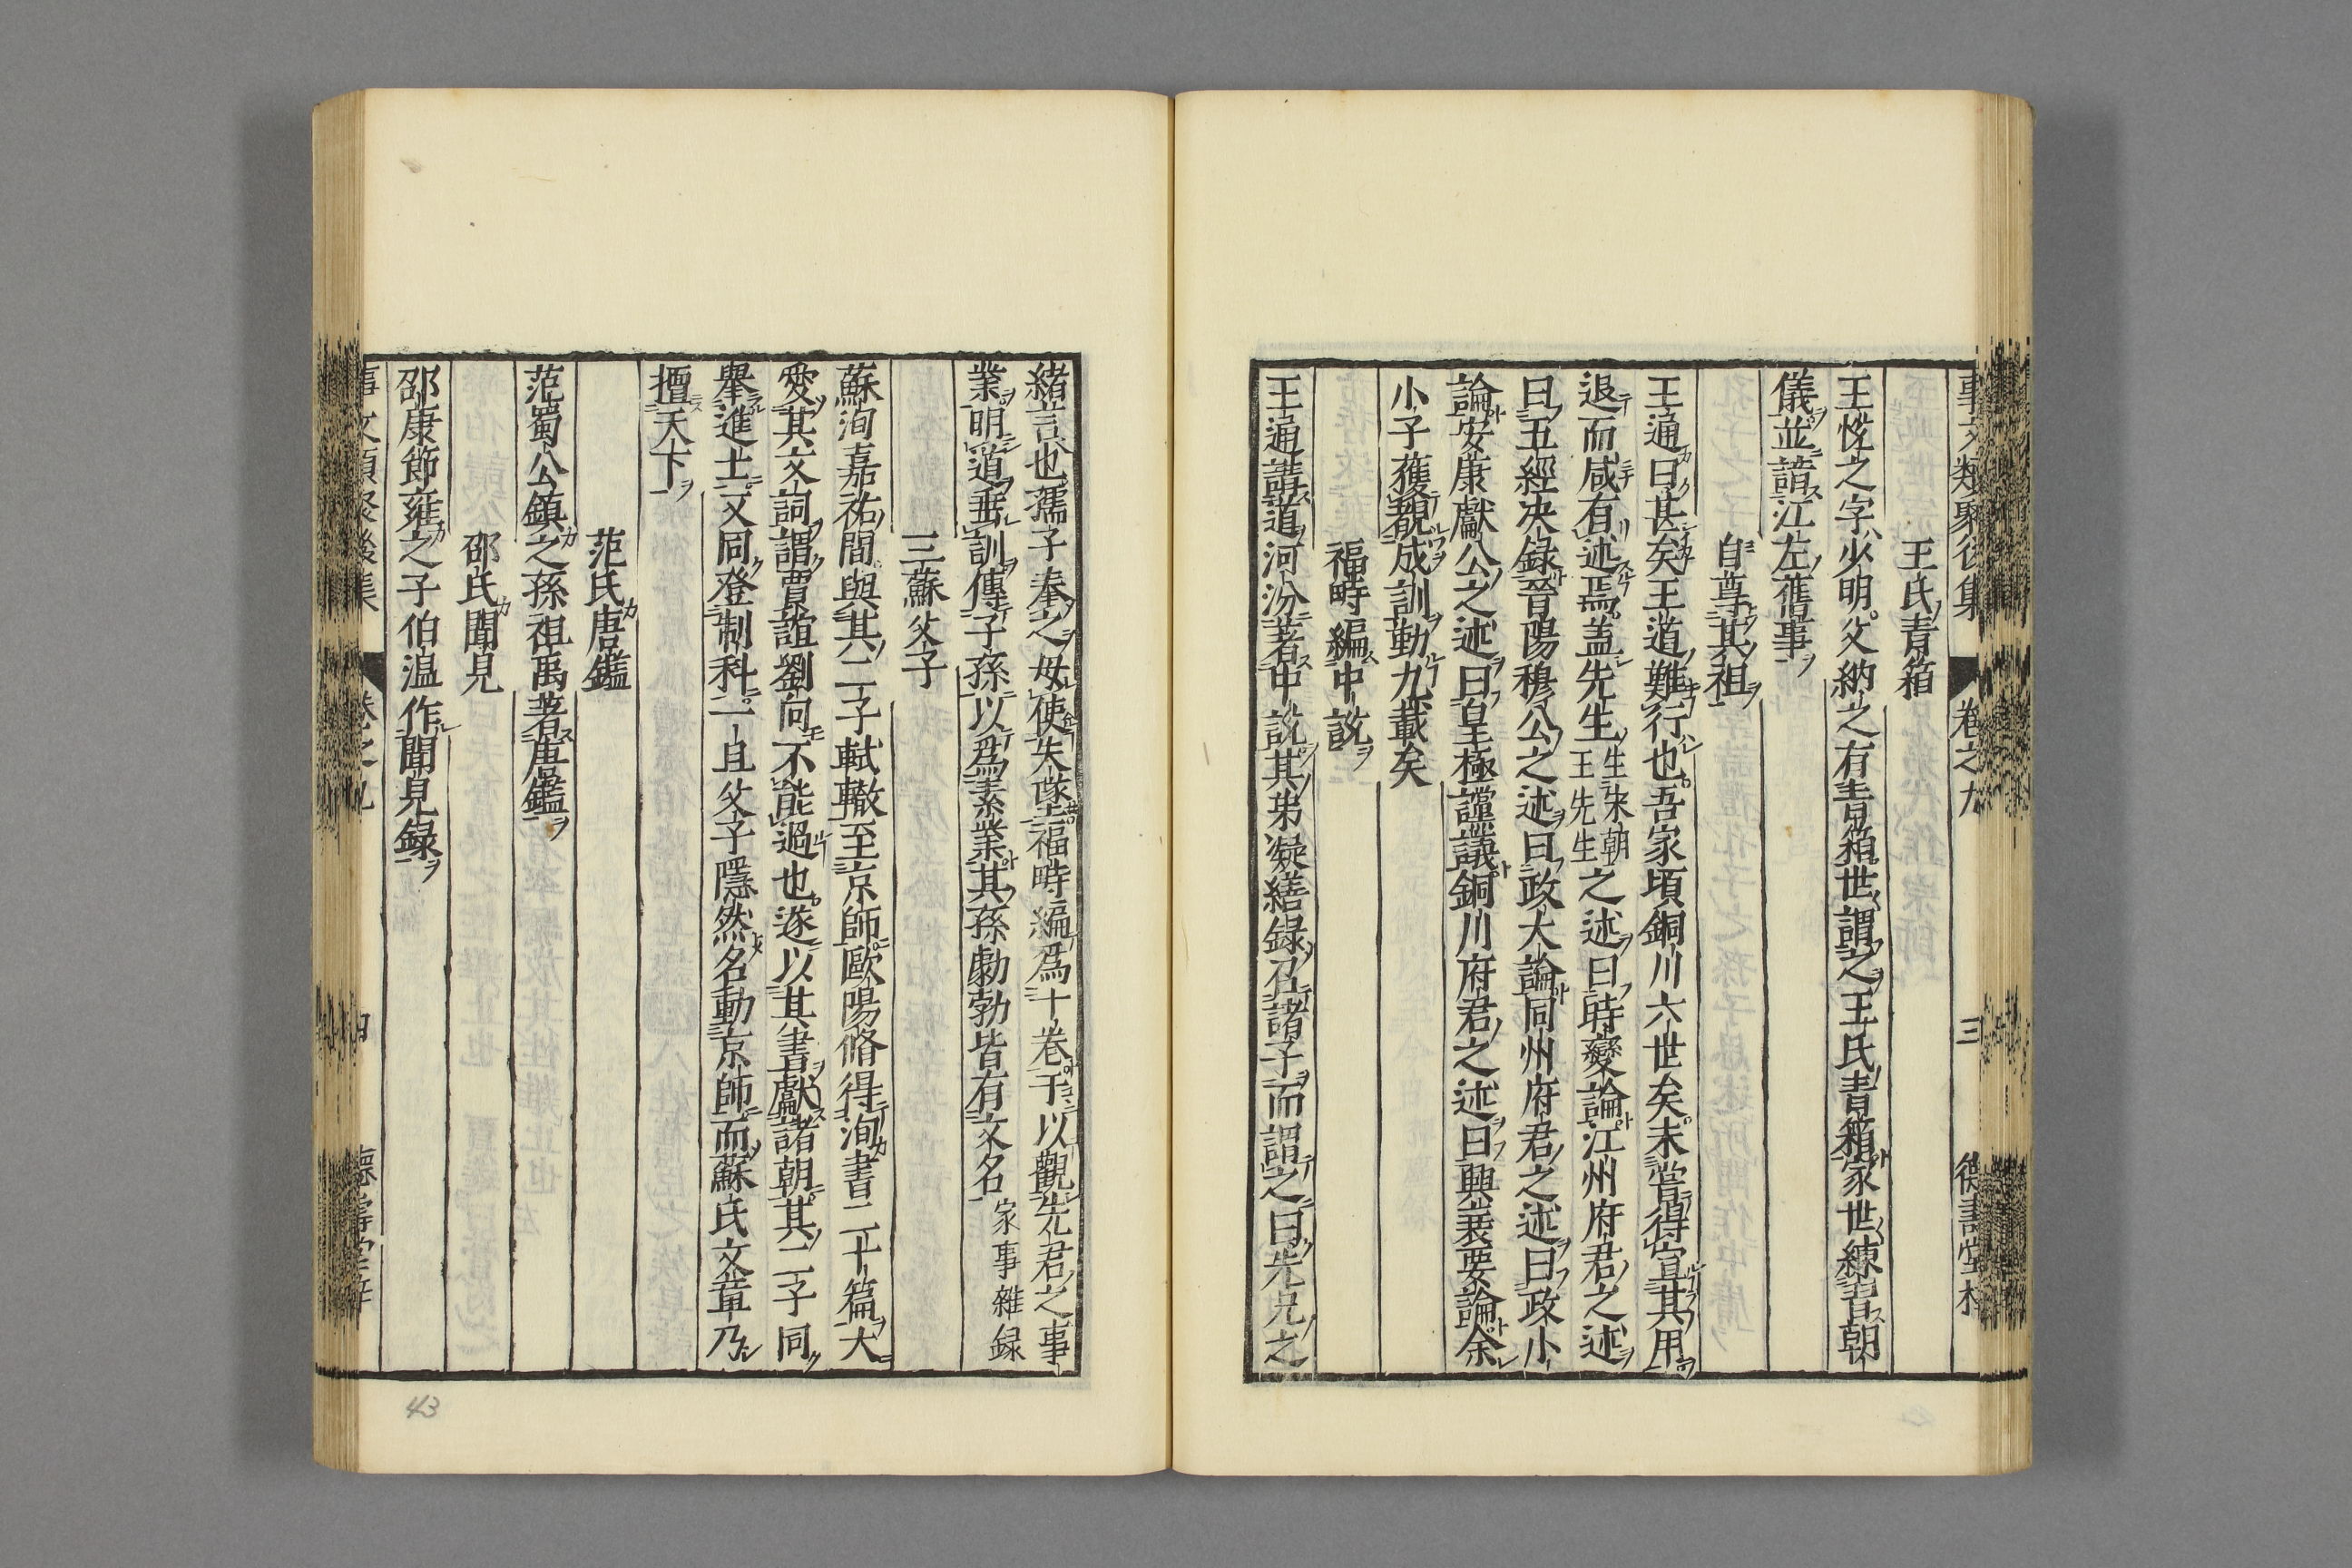 事文類聚後集 卷之九 三 德壽堂梓
王氏青箱
王悅之字少明父納之有青箱世謂之王氏青箱家世練習朝
儀並諳江左舊事
自尊其祖
王通曰甚矣王道難行也吾家頃銅川六世矣未嘗得宣其用
退而咸有述焉盖先生生宋朝王先生之述曰時變論江州府君之述
曰五經决録晉陽穆公之述曰政大論同州府君之述曰政小
論安康獻公之述曰皇極讜議銅川府君之述曰興衰要論余
小子獲覩成訓勤九載矣
福時編中說
王通講道河汾著中說其弟凝繕録召諸子而謂之曰先兄之
緒言也孺子奉之毋使失墜福時編爲十卷于以觀先君之事
業明道垂訓傳子孫以爲素業其孫勮勃皆有文名家事雜録
三蘇父子
蘇洵嘉祐間與其二子軾轍至京師歐陽脩得洵書二十篇大
愛其文詞謂賈誼劉向不能過也遂以其書獻諸朝其二子同
舉進士又同登制科二且父子隱然名動京師而蘇氏文章乃
擅天下
范氏唐鑑
范蜀公鎮之孫祖禹著唐鑑
邵氏聞見
邵康節雍之子伯温作聞見録
事文類聚後集 卷之九 四 德壽堂梓
43